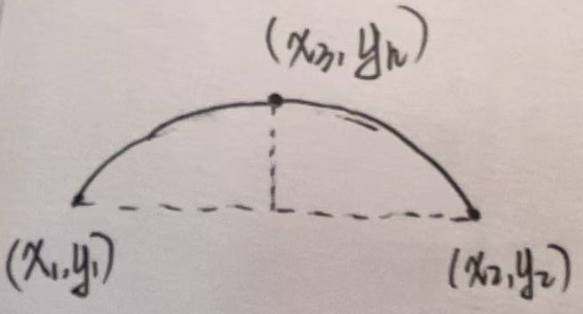 (x₃, yₙ)
(x₁, y₁)
(x₂, y₂)